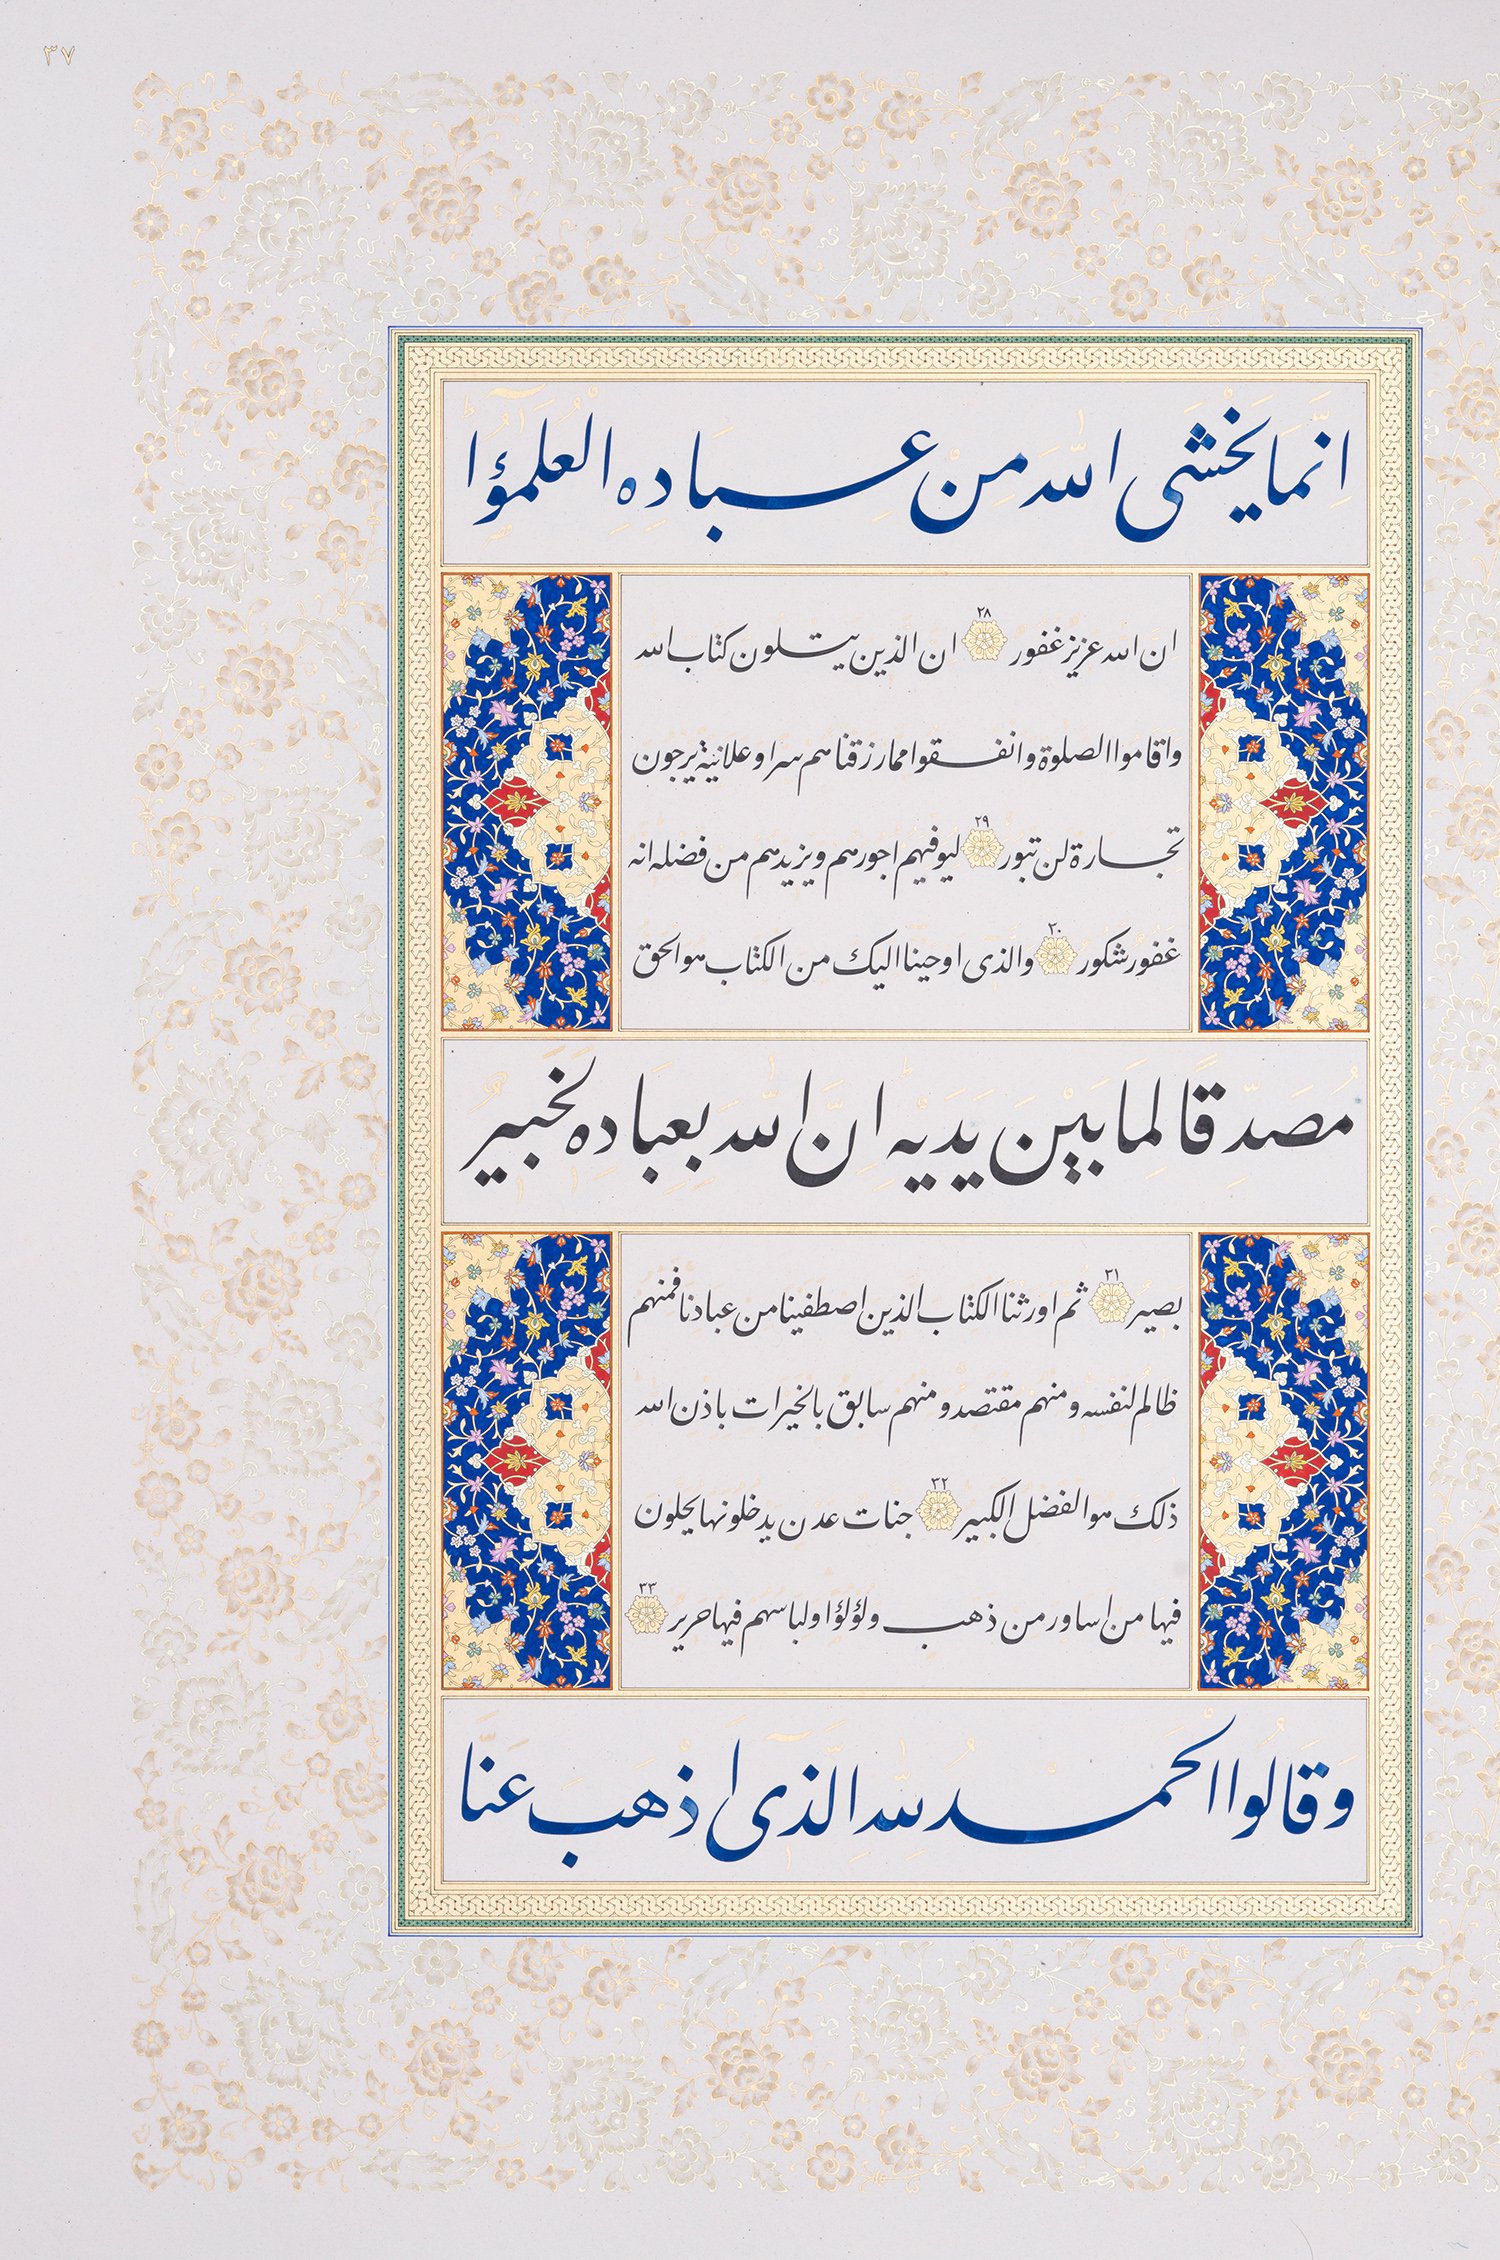 ۳۷
اِنَّمَا يَخْشَى اللّٰهَ مِنْ عِبَادِهِ الْعُلَمٰٓؤُا
ان الله عزيز غفور ۲۸ ان الذين يتلون كتاب الله
واقاموا الصلوة وانفقوا مما رزقناهم سرا وعلانية يرجون
تجارة لن تبور ۲۹ ليوفيهم اجورهم ويزيدهم من فضله انه
غفور شكور ۳۰ والذى اوحينا اليك من الكتاب هو الحق
مُصَدِّقًا لِمَا بَيْنَ يَدَيْهِ اِنَّ اللّٰهَ بِعِبَادِهٖ لَخَبيرٌ
بصير ۳۱ ثم اورثنا الكتاب الذين اصطفينا من عبادنا فمنهم
ظالم لنفسه ومنهم مقتصد ومنهم سابق بالخيرات باذن الله
ذلك هو الفضل الكبير ۳۲ جنات عدن يدخلونها يحلون
فيها من اساور من ذهب ولؤلؤا ولباسهم فيها حرير ۳۳
وَقَالُوا الْحَمْدُ لِلّٰهِ الَّذٓى اَذْهَبَ عَنَّا